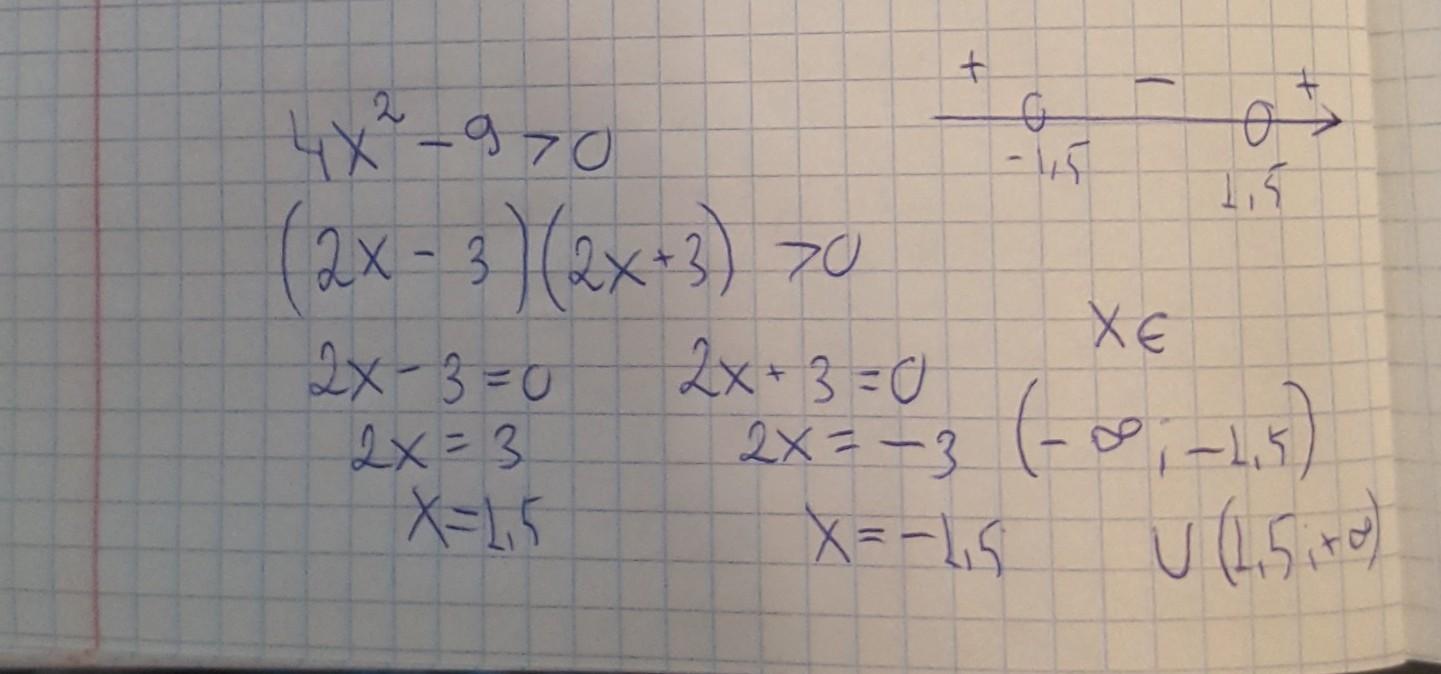 4x² - 9 > 0
(2x - 3)(2x + 3) > 0
2x - 3 = 0
2x = 3
x = 1,5
2x + 3 = 0
2x = -3
x = -1,5
+ - +
-1,5 1,5
x ∈
(-∞; -1,5)
∪ (1,5; +∞)